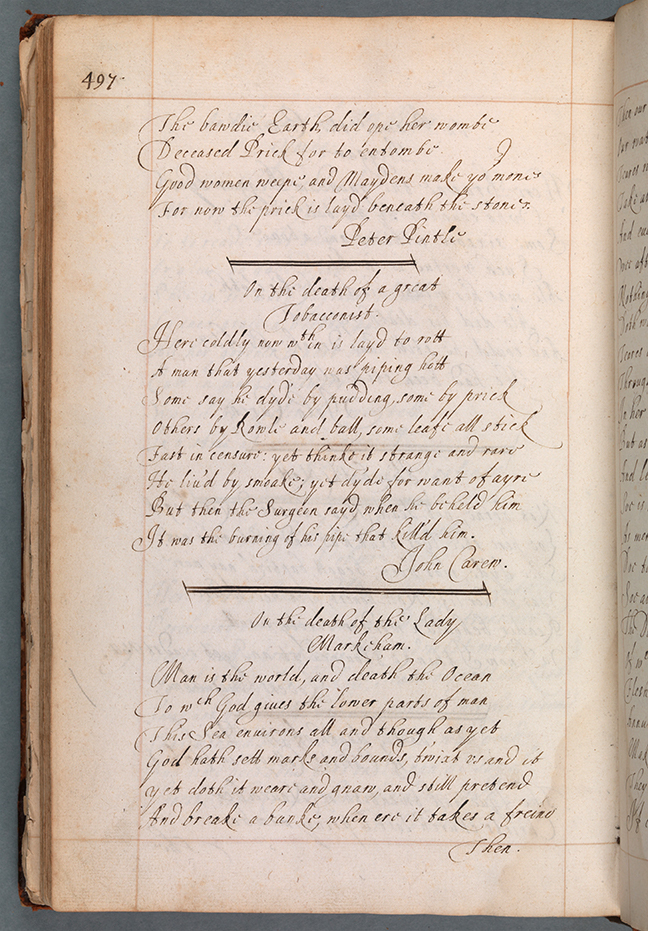 497
The bawdie Earth, did ope her wombe
Deceased Prick for to entombe
Good women weepe, and Maydens make yo mone
For now the prick is layd beneath the stone.
Peter Pintle
On the death of a great
Tobacconist.
Here coldly now wthin is layd to rott
A man that yesterday was piping hott
Some say he dyde by pudding, some by prick
Others by Rowle and ball, some leafe all stick
Fast in censure: yet thinke it strange and rare
He liu'd by smoake; yet dyde for want of ayre
But then the Surgeon sayd, when he beheld him
It was the burning of his pipe that kill'd him.
John Carew.
On the death of the Lady
Markeham.
Man is the world, and death the Ocean
To wch God giues the lower parts of man
This Sea environs all and though as yet
God hath sett marks and bounds, twixt vs and it
yet doth it weare and gnaw, and still pretend
And breake a banke, when ere it takes a freind
Then.